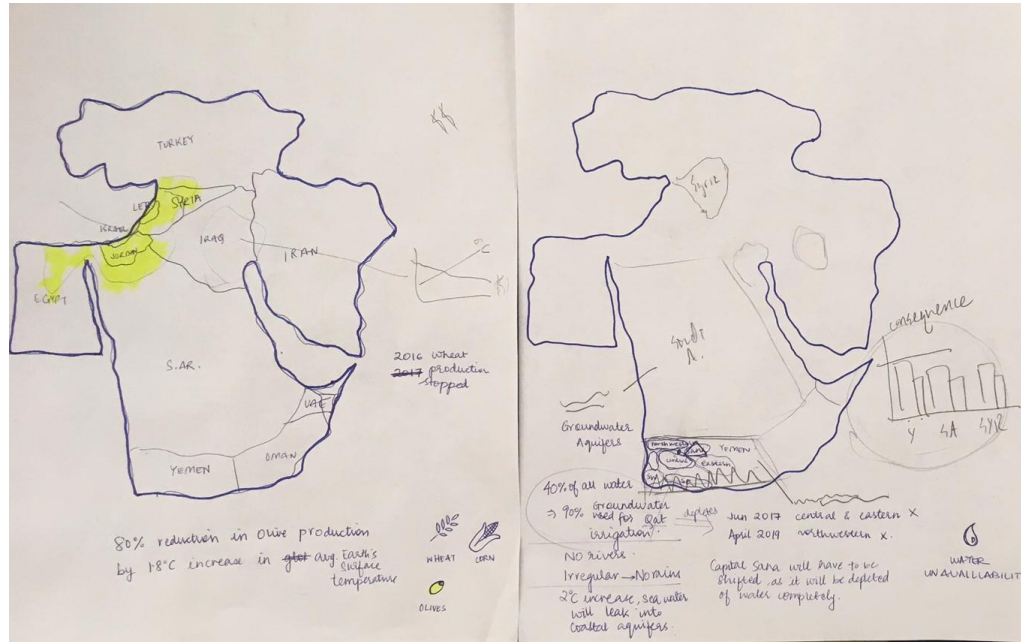 TURKEY
LEB
SYRIA
ISRAEL
JORDAN
IRAQ
IRAN
EGYPT
°C
S.AR.
2016 wheat
2017 production
stopped
UAE
YEMEN
OMAN
80% reduction in Olive production
by 1.8°C increase in avg. Earth's
surface
temperature
WHEAT
CORN
OLIVES
Syria
Saudi
A.
consequence
Y SA SYR
Groundwater
Aquifers
northwestern
YEMEN
central
eastern
40% of all water
⇒ 90% Groundwater
used for Qat
irrigation.
depletes
Jun 2017 central & eastern X
April 2019 northwestern X.
NO rivers.
Irregular → No rains
2°C increase, sea water
will leak into
coastal aquifers.
Capital Sana will have to be
shifted, as it will be depleted
of water completely.
WATER
UNAVAILABILIT